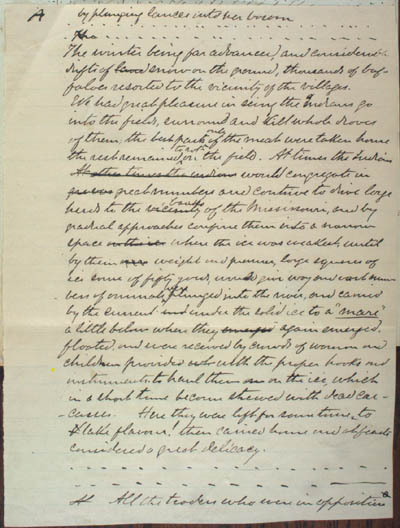 A by plunging lances into her bosom
The winter being far advanced, and considerable
drifts of snow on the ground, thousands of buf-
faloes resorted to the vicinity of the villages.
We had great pleasure in seeing the Indians go
into the fields, surround and kill whole droves
of them, the best parts only of the meat were taken home
the rest remained to rot on the field. At times the Indians
At other times the indians would congregate in
great numbers and contrive to drive large
herds to the vicinity banks of the Missouri, and by
gradual approaches confine them into a narrow
space where the ice was weakest, until
by their weight and pressure, large squares of
ice some of fifty yards, would give way and num-
bers of animals were plunged into the river, and carried
by the current under the solid ice to a "mare"
a little below where they emerged again emerged,
floated, and were received by crowds of women and
children provided with the proper hooks and
instruments to haul them on the ice, which
in a short time became strewed with dead car-
-casses. Here they were left for some time, to
take flavour! then carried home and
considered a great delicacy.
All the traders who were in opposition